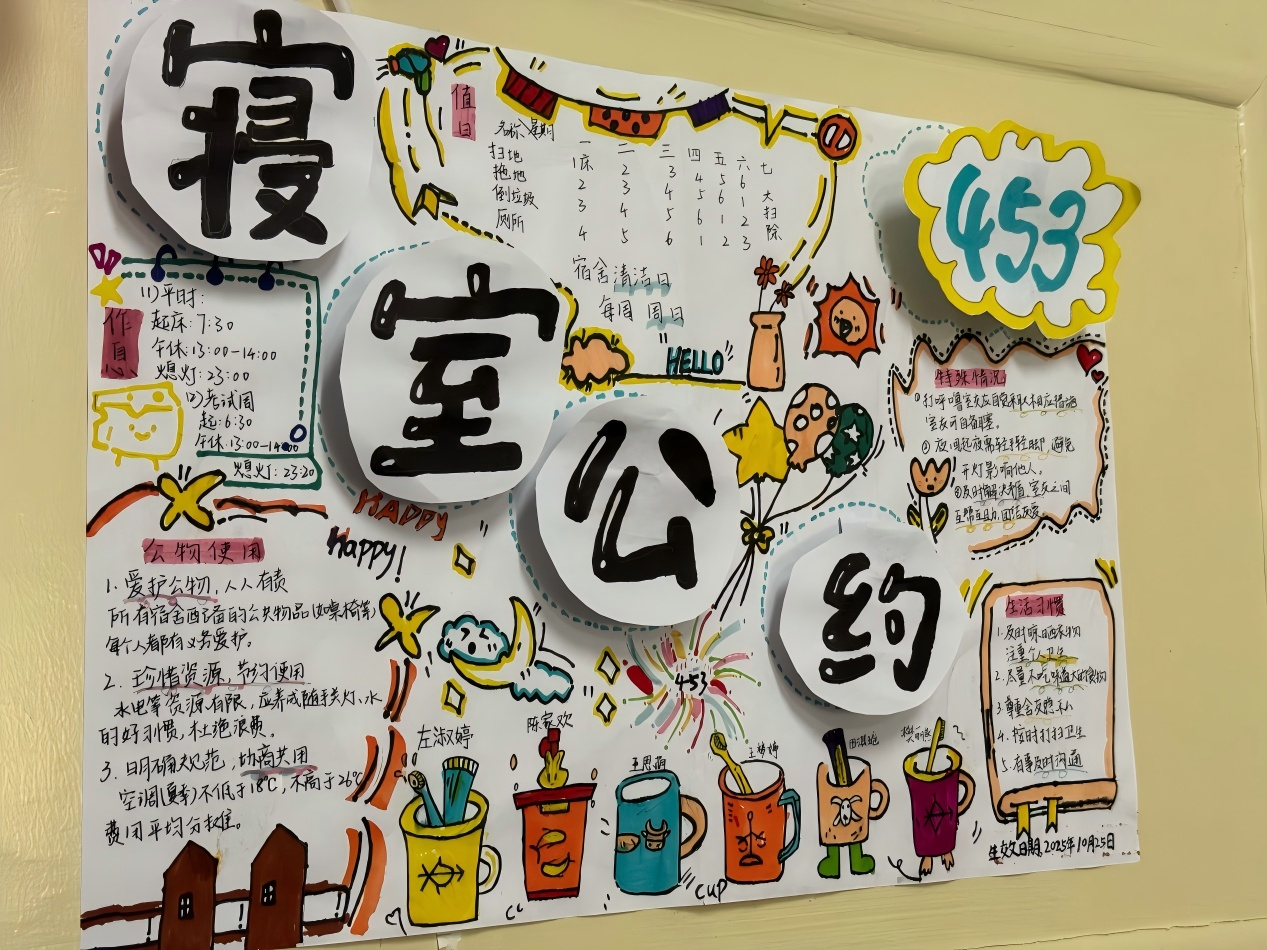 寝
室
公
约
453
值日
名称 星期 一 二 三 四 五 六 七
扫地 1床 2 3 4 5 6
拖地 2 3 4 5 6 1 大
倒垃圾 3 4 5 6 1 2 扫
厕所 4 5 6 1 2 3 除
宿舍清洁日
每周 周日
HELLO
作息
(1)平时:
起床:7:30
午休:13:00-14:00
熄灯:23:00
(2)考试周
起:6:30
午休:13:00-14:00
熄灯:23:20
HAPPY
Happy!
公物使用
1.爱护公物,人人有责
所有宿舍配备的公共物品(如桌椅等)
每个人都有义务爱护。
2.珍惜资源,节约使用
水电等资源有限,应养成随手关灯、水
的好习惯,杜绝浪费。
3.明确规范,协商共用
空调(夏季)不低于18℃,不高于26℃
费用平均分摊。
特殊情况
①打呼噜室友应自觉采取相应措施
室友可自备耳塞。
②夜间起夜需轻手轻脚,避免
开灯影响他人。
③及时解决矛盾,室友之间
互帮互助,团结友爱。
生活习惯
1.及时晾晒衣物
注重个人卫生
2.尽量不吃味道大的食物
3.尊重舍友隐私
4.按时打扫卫生
5.有事及时沟通
生效日期:2025年10月25日
453
左淑婷
陈家欢
cup